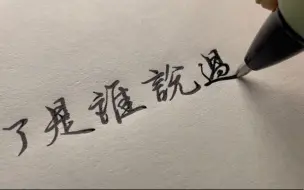 了是誰說過